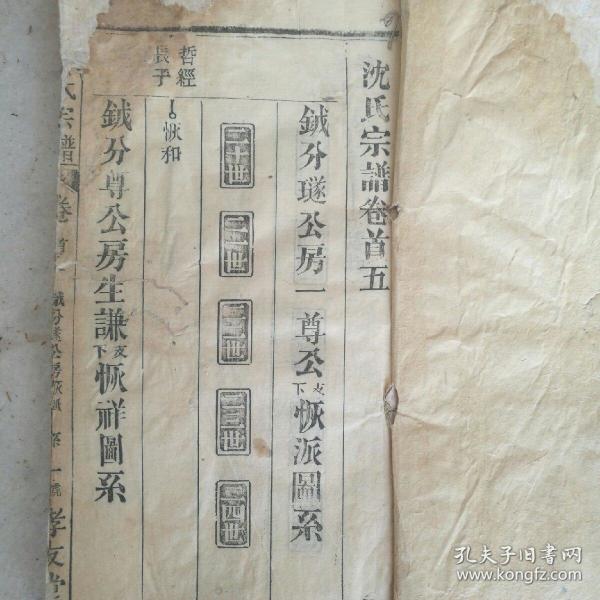 沈氏宗譜卷首五
鉞分璲公房一尊公支下恢派圖系
二十世
二一世
二二世
二三世
二四世
哲經長子
恢和
鉞分尊公房生謙支下恢祥圖系
氏宗譜
卷首
系
一號
孝友堂
孔夫子旧书网
www.kongfz.com